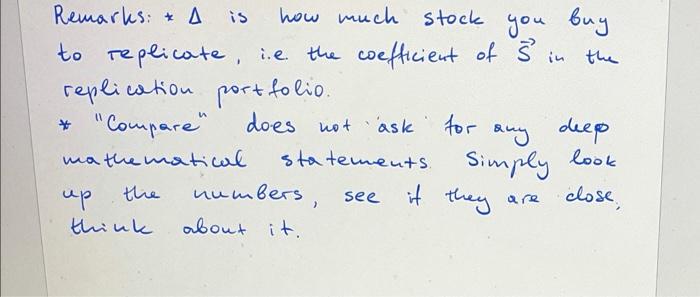 Remarks: * Δ is how much stock you buy
to replicate, i.e. the coefficient of S⃗ in the
replication portfolio.
* "Compare" does not ask for any deep
mathematical statements. Simply look
up the numbers, see if they are close,
think about it.